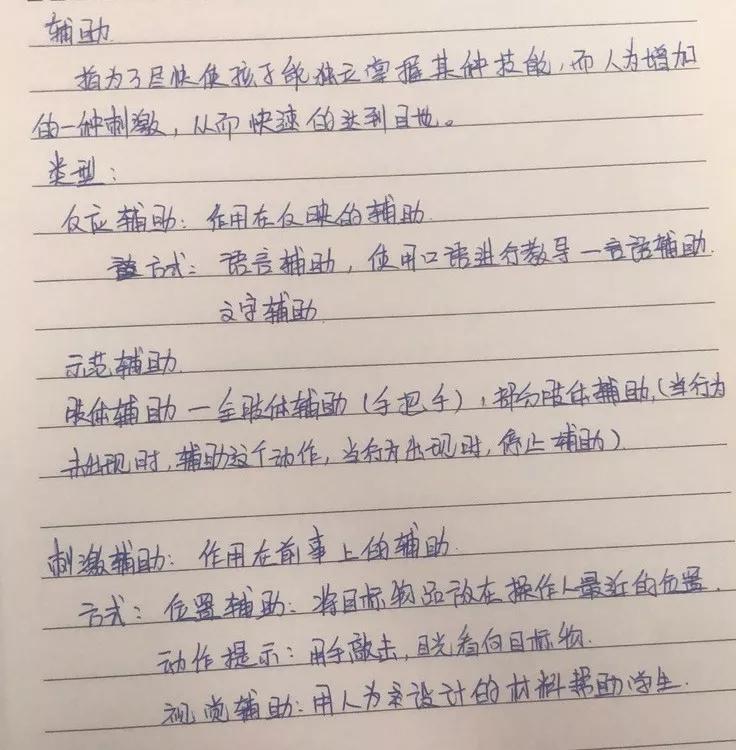 辅助
指为了尽快使孩子能独立掌握某种技能,而人为增加
的一种刺激,从而快速的达到目地。
类型:
反应辅助:作用在反映的辅助.
方式:语言辅助,使用口语进行教导一言语辅助.
文字辅助
示范辅助.
肢体辅助—全肢体辅助(手把手),部分肢体辅助,(当行为
未出现时,辅助这个动作,当行为出现时,停止辅助)
刺激辅助:作用在前事上的辅助.
方式:位置辅助:将目标物品放在操作人最近的位置.
动作提示:用手敲击,目光看向目标物.
视觉辅助:用人为来设计的材料帮助学生.